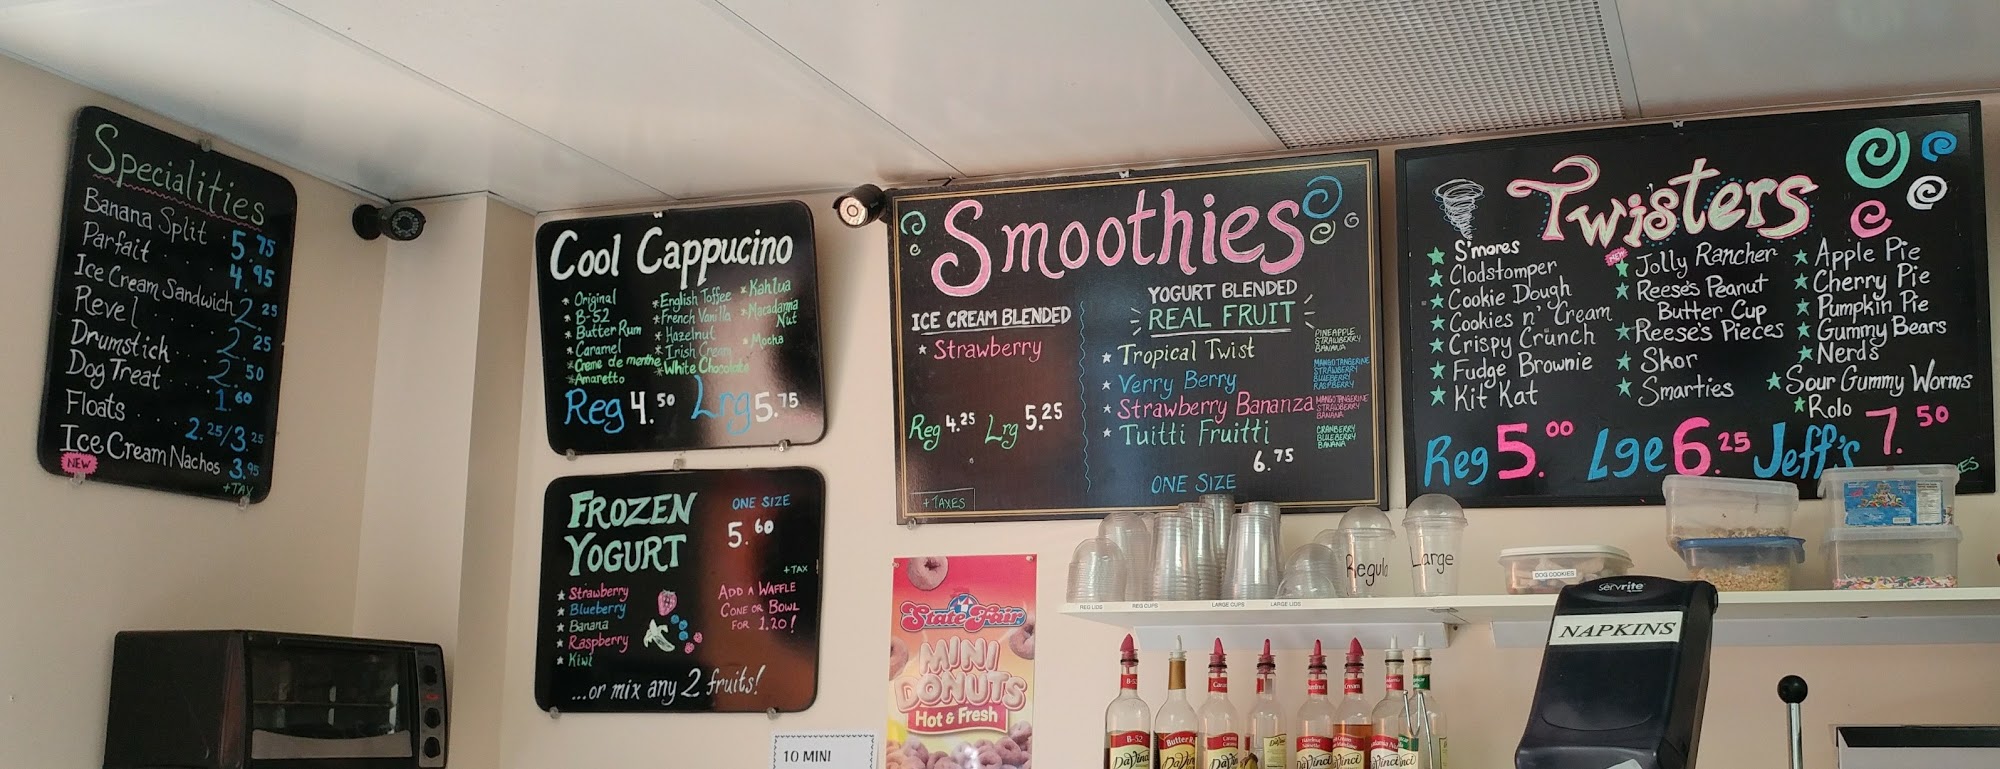 Specialities
Banana Split . 5.75
Parfait . . . . . 4.95
Ice Cream Sandwich 2.25
Revel . . . . . . 2.25
Drumstick . . . 2.50
Dog Treat . . . . 1.60
Floats . . . . 2.25/3.25
Ice Cream Nachos 3.95
NEW
+TAX
Cool Cappucino
* Original
* B-52
* Butter Rum
* Caramel
* Creme de menthe
* Amaretto
* English Toffee
* French Vanilla
* Hazelnut
* Irish Cream
* White Chocolate
* Kahlua
* Macadamia
Nut
* Mocha
Reg 4.50 Lrg 5.75
FROZEN
YOGURT
ONE SIZE
5.60
+TAX
Strawberry
Blueberry
Banana
Raspberry
Kiwi
ADD A WAFFLE
CONE OR BOWL
FOR 1.20!
...or mix any 2 fruits!
Smoothies
ICE CREAM BLENDED
Strawberry
Reg 4.25 Lrg 5.25
+TAXES
YOGURT BLENDED
REAL FRUIT
Tropical Twist
PINEAPPLE
STRAWBERRY
BANANA
Verry Berry
MANGO TANGERINE
STRAWBERRY
BLUEBERRY
RASPBERRY
Strawberry Bananza
MANGO TANGERINE
STRAWBERRY
BANANA
Tuitti Fruitti
CRANBERRY
BLUEBERRY
BANANA
6.75
ONE SIZE
Twisters
S'mores
Clodstomper
Cookie Dough
Cookies n' Cream
Crispy Crunch
Fudge Brownie
Kit Kat
NEW
Jolly Rancher
Reese's Peanut
Butter Cup
Reese's Pieces
Skor
Smarties
Apple Pie
Cherry Pie
Pumpkin Pie
Gummy Bears
Nerds
Sour Gummy Worms
Rolo
Reg 5.00 Lge 6.25 Jeff's 7.50
State Fair
MINI
DONUTS
Hot & Fresh
10 MINI
Regula
Large
REG LIDS
REG CUPS
LARGE CUPS
LARGE LIDS
DOG COOKIES
servrite
NAPKINS
B-52
B-52
DaVinci
DaVinci
DaVinci
DaVinci
DaVinci